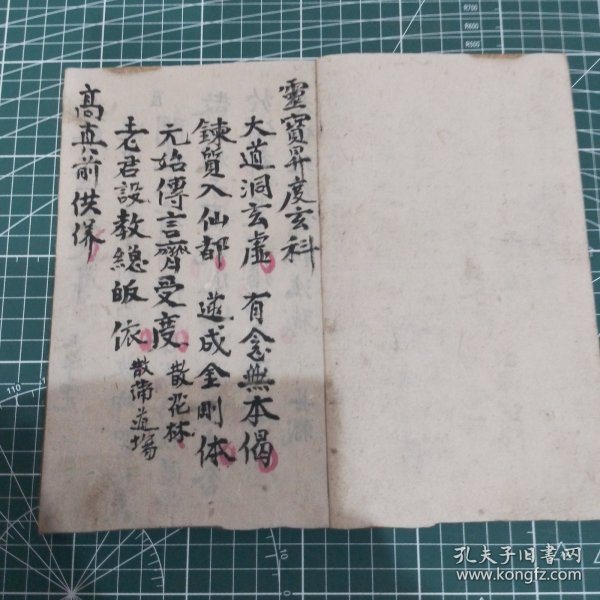 靈寶昇度玄科
大道洞玄虛 有念無不偈
鍊質入仙都 遂成金剛体
元始傳言齊受度 散花林
老君設教總皈依 散滿道場
高真前供养
孔夫子旧书网
www.kongfz.com